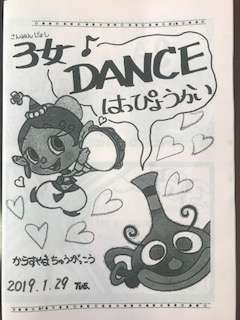 さんねんじょし
3女♪
DANCE
はっぴょうかい
からすやまちゅうがっこう
2019.1.29 TUE.